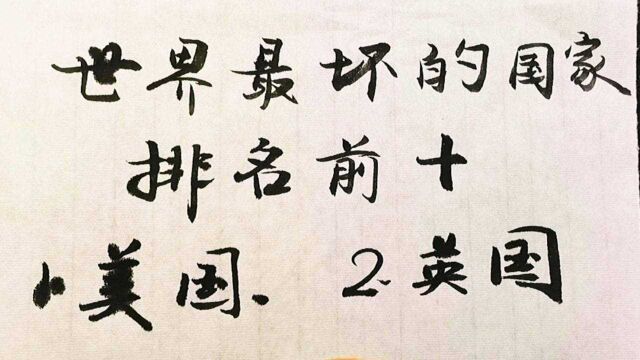 世界最坏的国家
排名前十
1、美国、2.英国